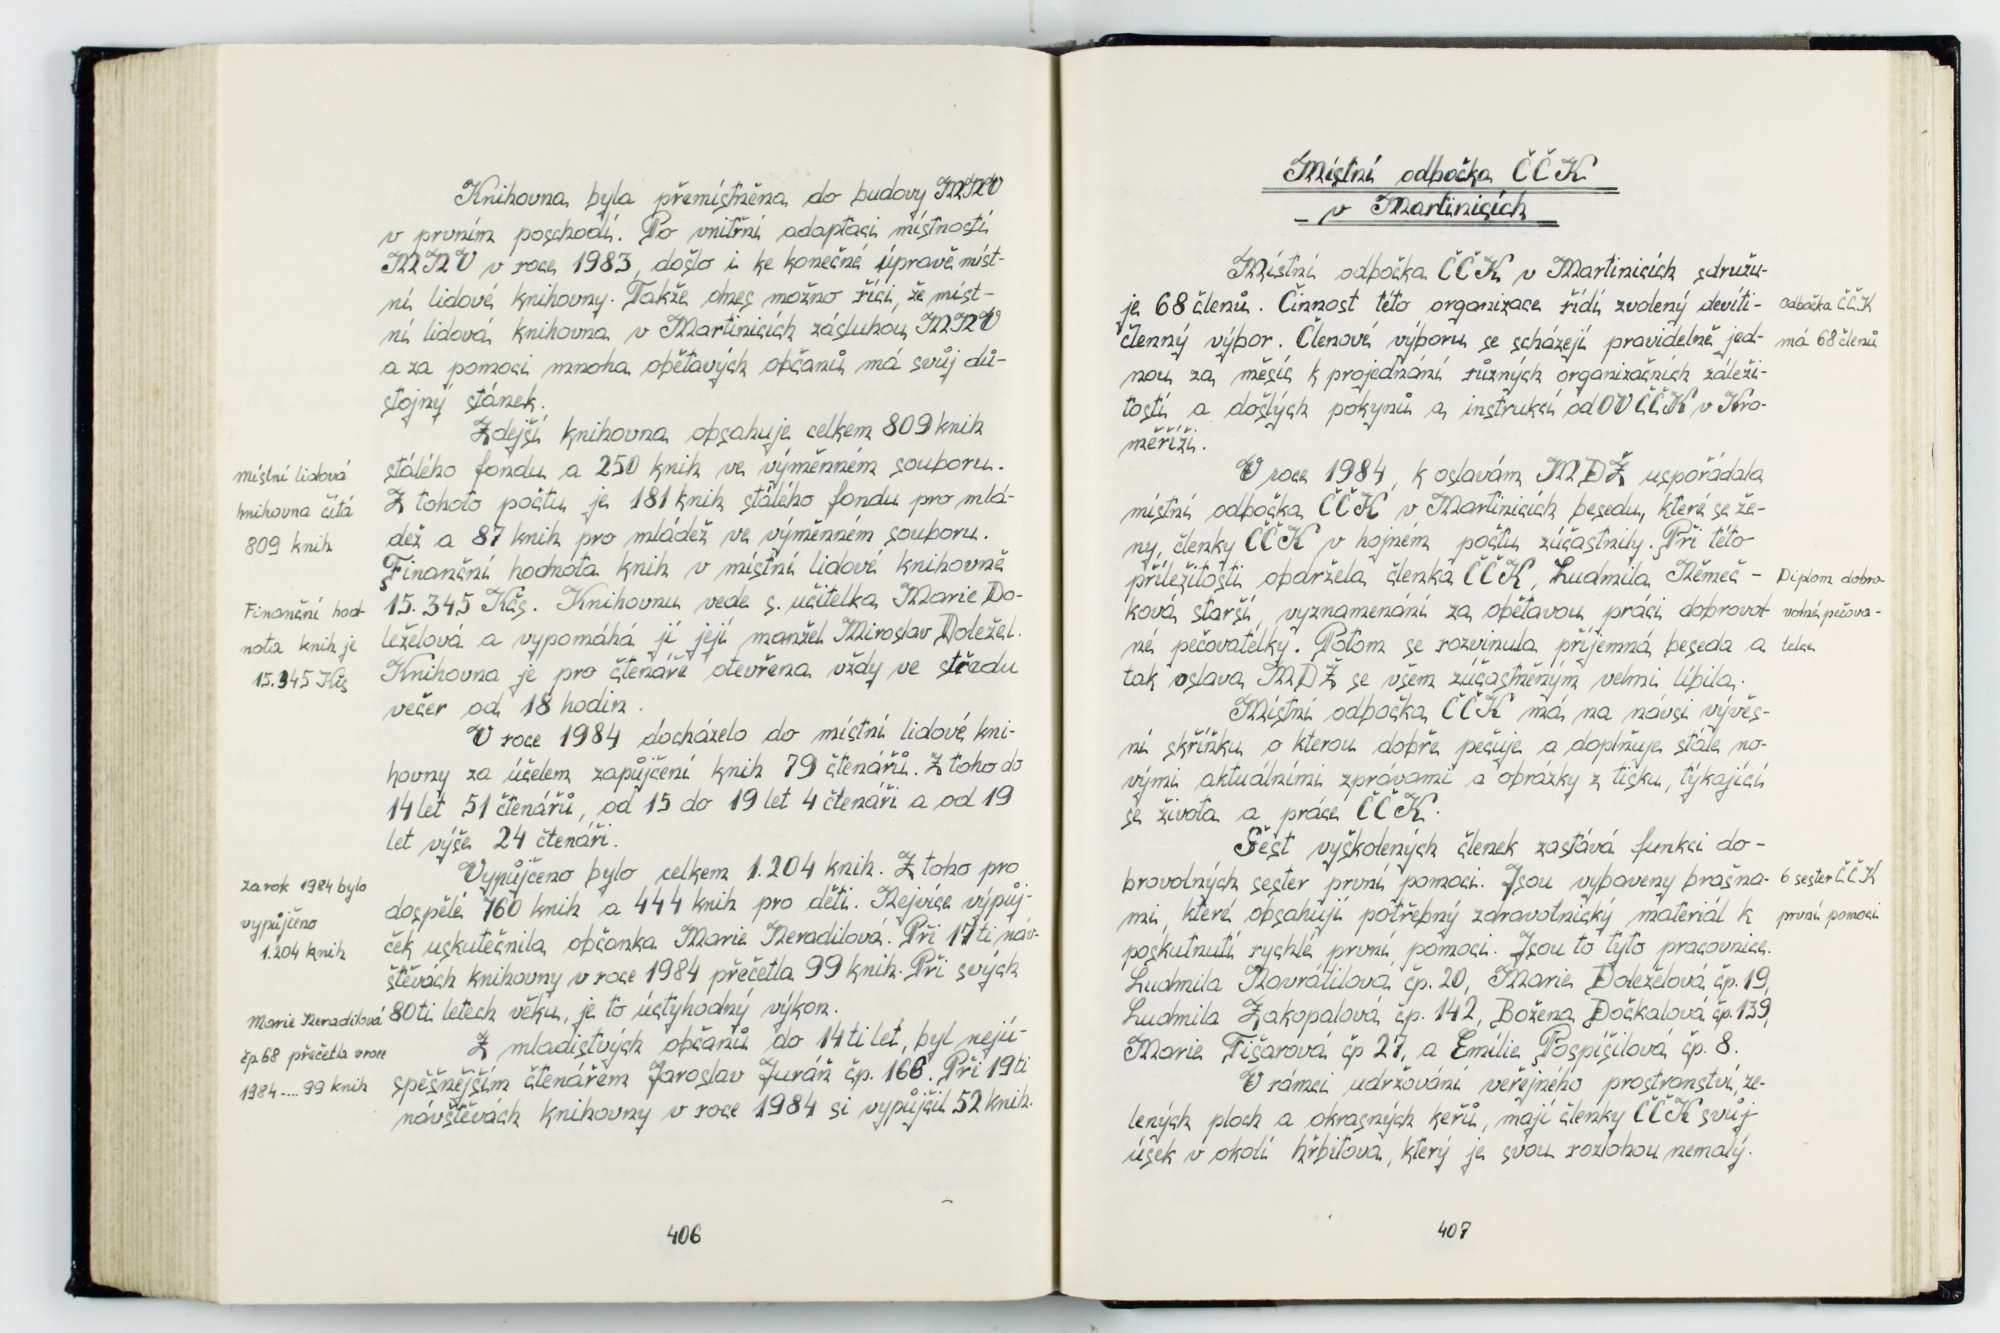 Knihovna byla přemístněna do budovy MNV
v prvním poschodí. Po vnitřní adaptaci místností
MNV v roce 1983, došlo i ke konečné úpravě míst-
ní lidové knihovny. Takže dnes možno říci, že míst-
ní lidová knihovna v Martinicích zásluhou MNV
a za pomoci mnoha obětavých občanů má svůj dů-
stojný stánek.
Zdejší knihovna obsahuje celkem 809 knih
stálého fondu a 250 knih ve výměnném souboru.
Z tohoto počtu je 181 knih stálého fondu pro mlá-
dež a 87 knih pro mládež ve výměnném souboru.
Finanční hodnota knih v místní lidové knihovně
15.345 Kčs. Knihovnu vede s. učitelka Marie Do-
leželová a vypomáhá jí její manžel Miroslav Doležel.
Knihovna je pro čtenáře otevřena vždy ve středu
večer od 18 hodin.
V roce 1984 docházelo do místní lidové kni-
hovny za účelem zapůjčení knih 79 čtenářů. Z toho do
14 let 51 čtenářů, od 15 do 19 let 4 čtenáři a od 19
let výše 24 čtenáři.
Vypůjčeno bylo celkem 1.204 knih. Z toho pro
dospělé 760 knih a 444 knih pro děti. Nejvíce výpůj-
ček uskutečnila občanka Marie Neradilová. Při 17ti náv-
štěvách knihovny v roce 1984 přečetla 99 knih. Při svých
80ti letech věku, je to úctyhodný výkon.
Z mladistvých občanů do 14ti let, byl nejú-
spěšnějším čtenářem Jaroslav Juráň čp. 166. Při 19ti
návštěvách knihovny v roce 1984 si vypůjčil 52 knih.
místní lidová
knihovna čítá
809 knih
Finanční hod-
nota knih je
15.345 Kčs
za rok 1984 bylo
vypůjčeno
1.204 knih
Marie Neradilová
čp.68 přečetla v roce
1984 .... 99 knih
406
Místní odbočka ČČK
v Martinicích
Místní odbočka ČČK v Martinicích sdružu-
je 68 členů. Činnost této organizace řídí zvolený devíti-
členný výbor. Členové výboru se scházejí pravidelně jed-
nou za měsíc k projednání různých organizačních záleži-
tostí a došlých pokynů a instrukcí od OV ČČK v Kro-
měříži.
V roce 1984, k oslavám MDŽ uspořádala
místní odbočka ČČK v Martinicích besedu, které se že-
ny, členky ČČK v hojném počtu zúčastnily. Při této
příležitosti obdržela členka ČČK, Ludmila Němeč-
ková starší, vyznamenání za obětavou práci dobrovol-
né pečovatelky. Potom se rozvinula příjemná beseda a
tak oslava MDŽ se všem zúčastněným velmi líbila.
Místní odbočka ČČK má na návsi vývěs-
ní skříňku o kterou dobře pečuje a doplňuje stále no-
vými aktuálními zprávami a obrázky z tisku, týkající
se života a práce ČČK.
Šest vyškolených členek zastává funkci do-
brovolných sester první pomoci. Jsou vybaveny brašna-
mi, které obsahují potřebný zdravotnický materiál k
poskutnutí rychlé první pomoci. Jsou to tyto pracovnice.
Ludmila Navrátilová čp. 20, Marie Doleželová čp. 19,
Ludmila Zakopalová čp. 142, Božena Dočkalová čp. 139,
Marie Fišarová čp 27, a Emílie Pospíšilová čp. 8.
V rámci udržování veřejného prostranství, ze-
lených ploch a okrasných keřů, mají členky ČČK svůj
úsek v okolí hřbitova, který je svou rozlohou nemalý.
odbočka ČČK
má 68 členů
Diplom dobro-
volné pečova-
telce
6 sester ČČK
první pomoci
407